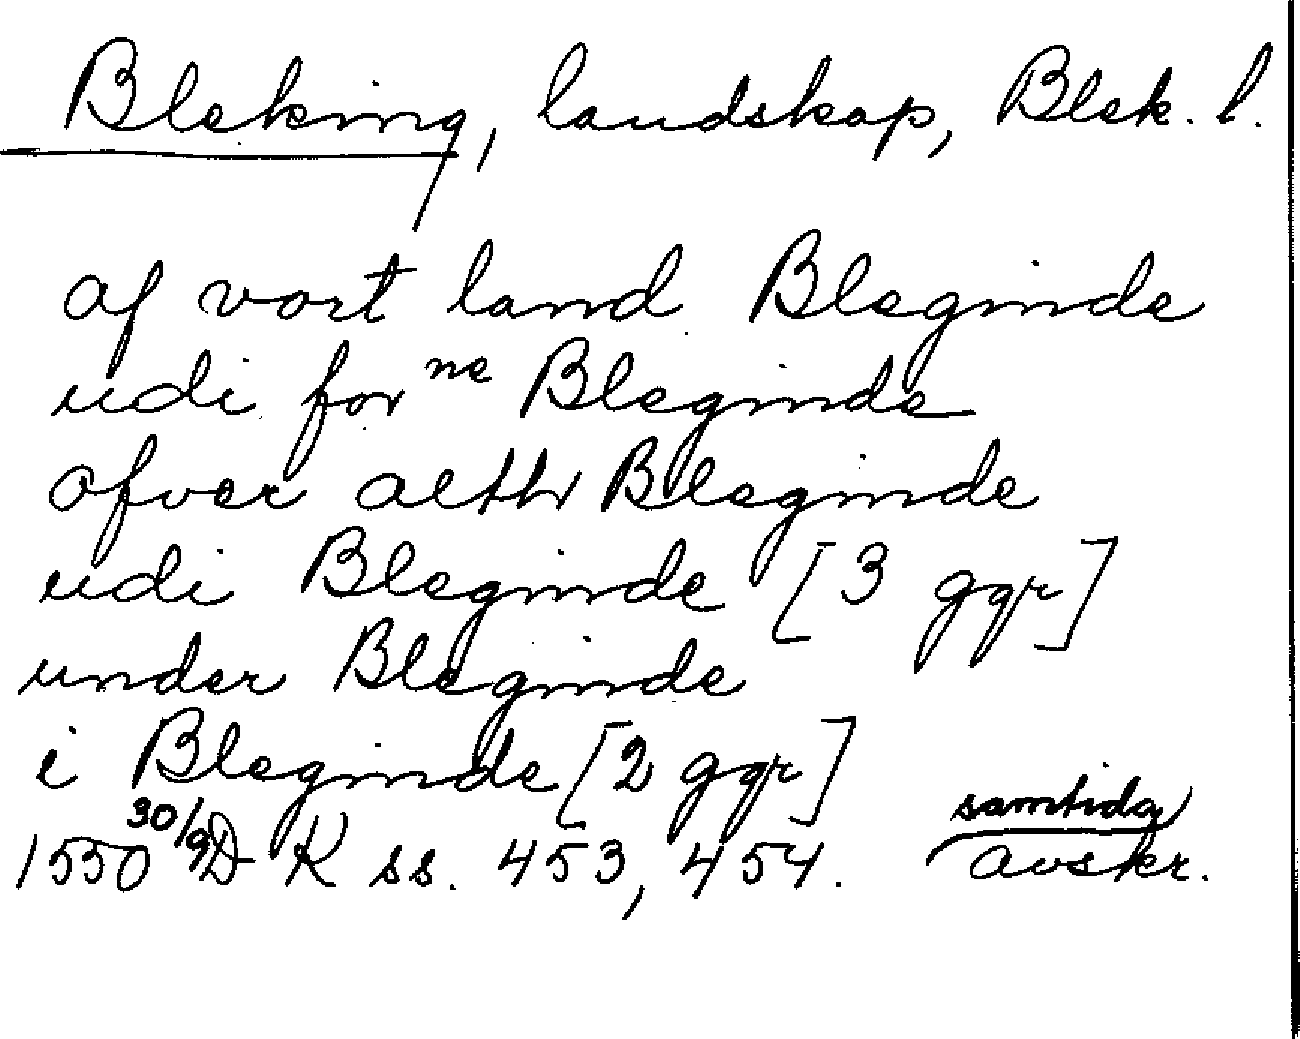 Bleking, landskap, Blek. l.
af vort land Bleginde
udi for ne Bleginde
ofver alth Bleginde
udi Bleginde [3 ggr]
under Bleginde
i Bleginde [2 ggr]
1550 30/9 D K ss. 453, 454. samtida avskr.